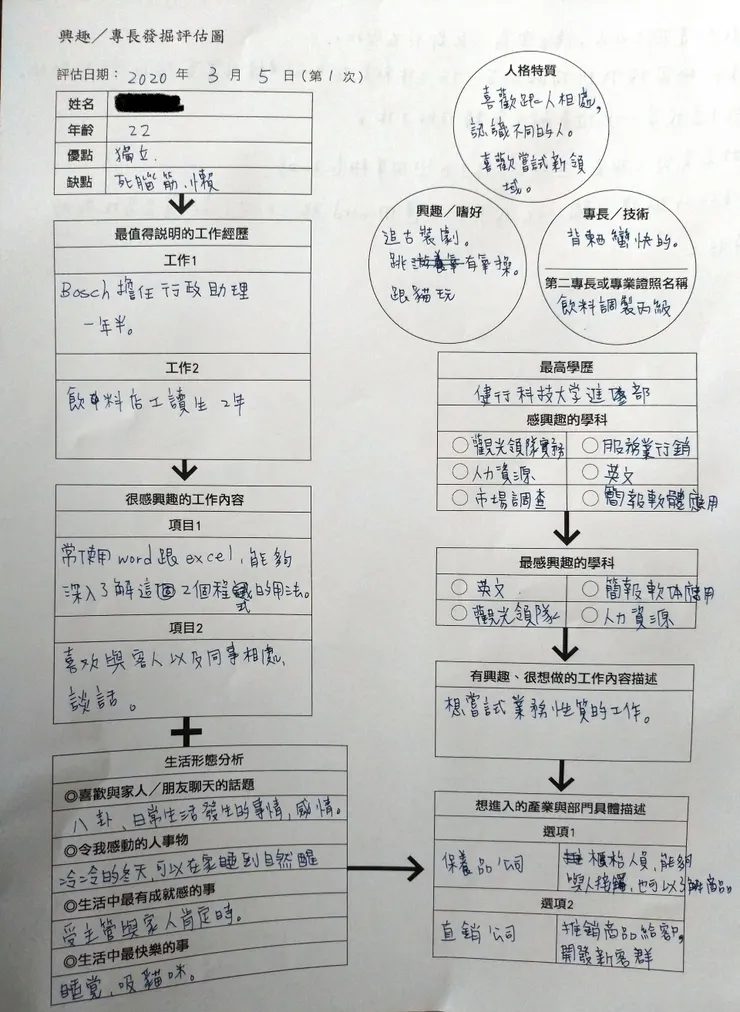 興趣／專長發掘評估圖
評估日期： 2020 年 3 月 5 日（第 1 次）
姓名
年齡 22
優點 獨立.
缺點 死腦筋、懶
最值得說明的工作經歷
工作1
Bosch 擔任行政助理
一年半。
工作2
飲料店工讀生 2年
很感興趣的工作內容
項目1
常使用 word 跟 excel, 能夠
深入了解這 2個程式的用法。
項目2
喜歡與客人以及同事相處、
談話。
生活形態分析
◎喜歡與家人／朋友聊天的話題
八卦、日常生活發生的事情, 感情。
◎令我感動的人事物
冷冷的冬天,可以在家睡到自然醒
◎生活中最有成就感的事
受主管與家人肯定時。
◎生活中最快樂的事
睡覺, 吸貓咪。
人格特質
喜歡跟人相處,
認識不同的人。
喜歡嘗試新領
域。
興趣／嗜好
追古裝劇。
跳有氧操。
跟貓玩
專長／技術
背東西蠻快的。
第二專長或專業證照名稱
飲料調製丙級
最高學歷
健行科技大學進修部
感興趣的學科
○觀光領隊實務 ○服務業行銷
○人力資源 ○英文
○市場調查 ○簡報軟體應用
最感興趣的學科
○英文 ○簡報軟体應用
○觀光領隊 ○人力資源
有興趣、很想做的工作內容描述
想嘗試業務性質的工作。
想進入的產業與部門具體描述
選項1
保養品公司 櫃檯人員, 能夠
與人接觸, 也可以了解商品。
選項2
直銷公司 推銷商品給客戶,
開發新客群